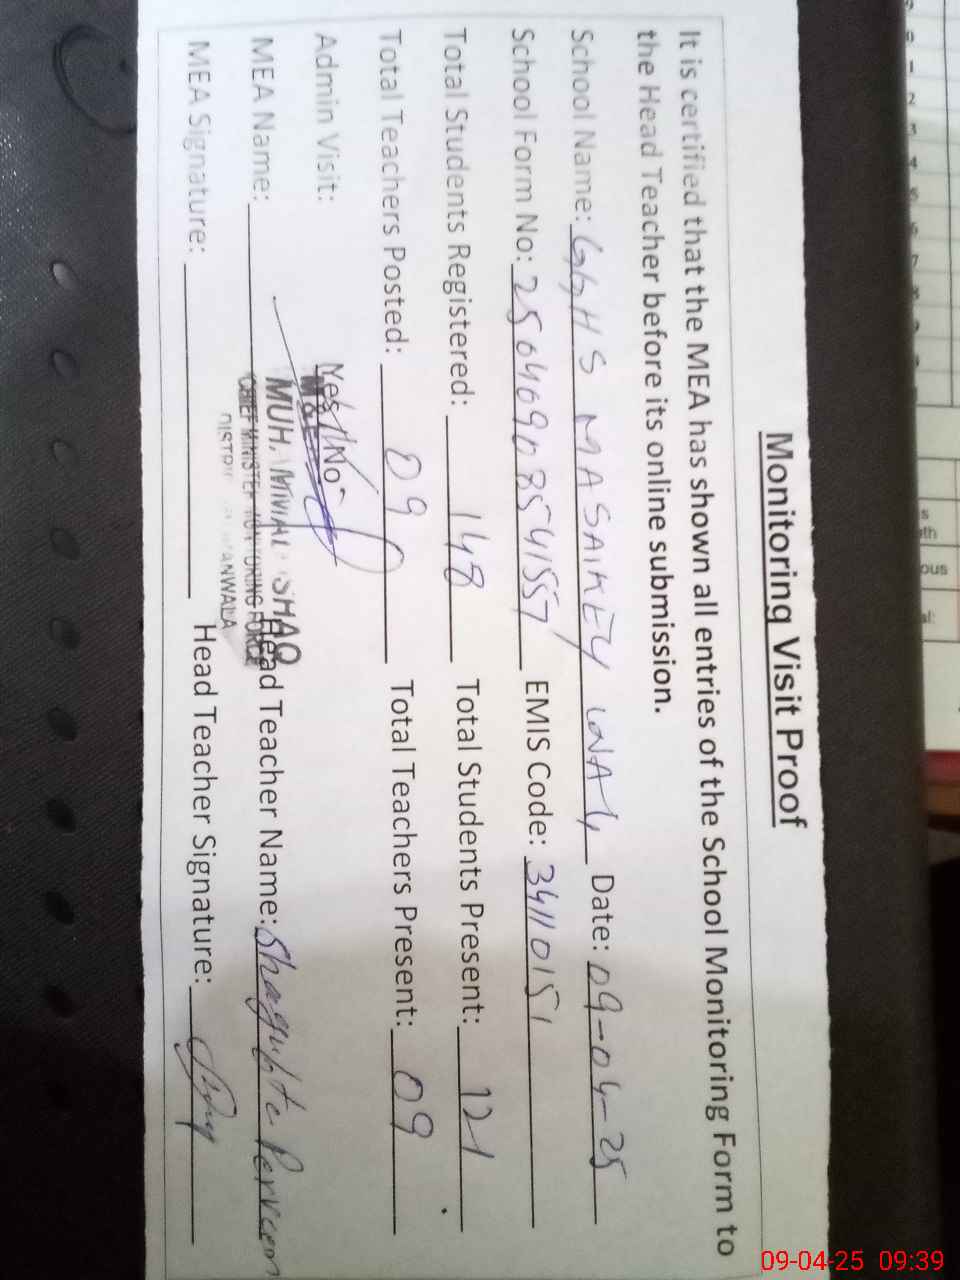 Monitoring Visit Proof
It is certified that the MEA has shown all entries of the School Monitoring Form to
the Head Teacher before its online submission.
School Name: GGHS MASAIKEY WALA Date: 09-04-25
School Form No: EMIS Code: 34110151
Total Students Registered: 148 Total Students Present: 121
Total Teachers Posted: 09 Total Teachers Present: 09
Admin Visit: Yes/No
MEA Name: MUH. Head Teacher Name: Shagufta Perveen
CHIEF MINISTER MONITORING FORCE
MEA Signature: Head Teacher Signature:
09-04-25 09:39